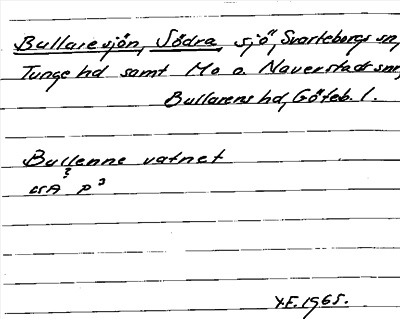 Bullaresjön, Södra, sjö, Svarteborgs sn,
Tunge hd samt Mo o. Naverstads snr,
Bullarens hd, Göteb. l.
Bullenne vatnet
?
USA p³
Y.F. 1965.